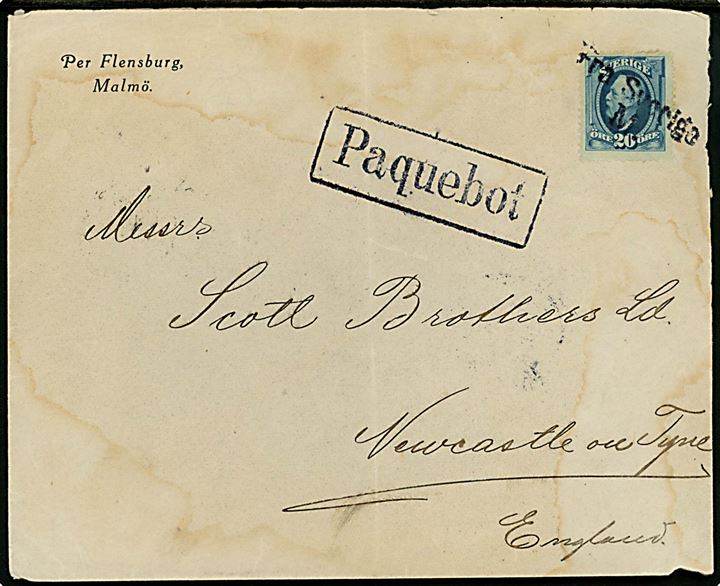 Per Flensburg,
Malmö.
SVERIGE
Fra Sverige
M
ÖRE 20 ÖRE
Paquebot
Messrs
Scott Brothers Ld.
Newcastle on Tyne
England.